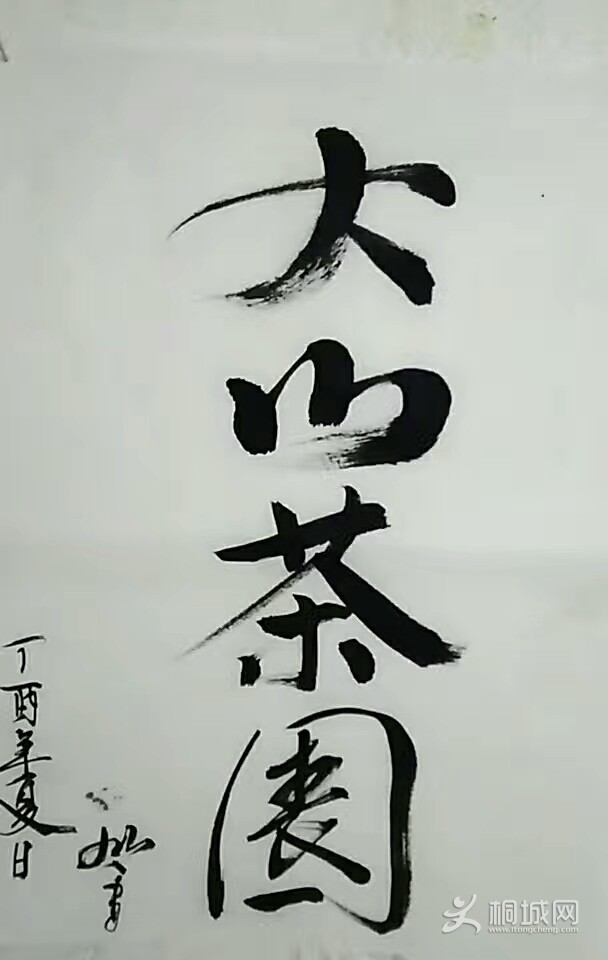 大山茶園
丁酉年夏日
书
桐城网
www.itongcheng.com